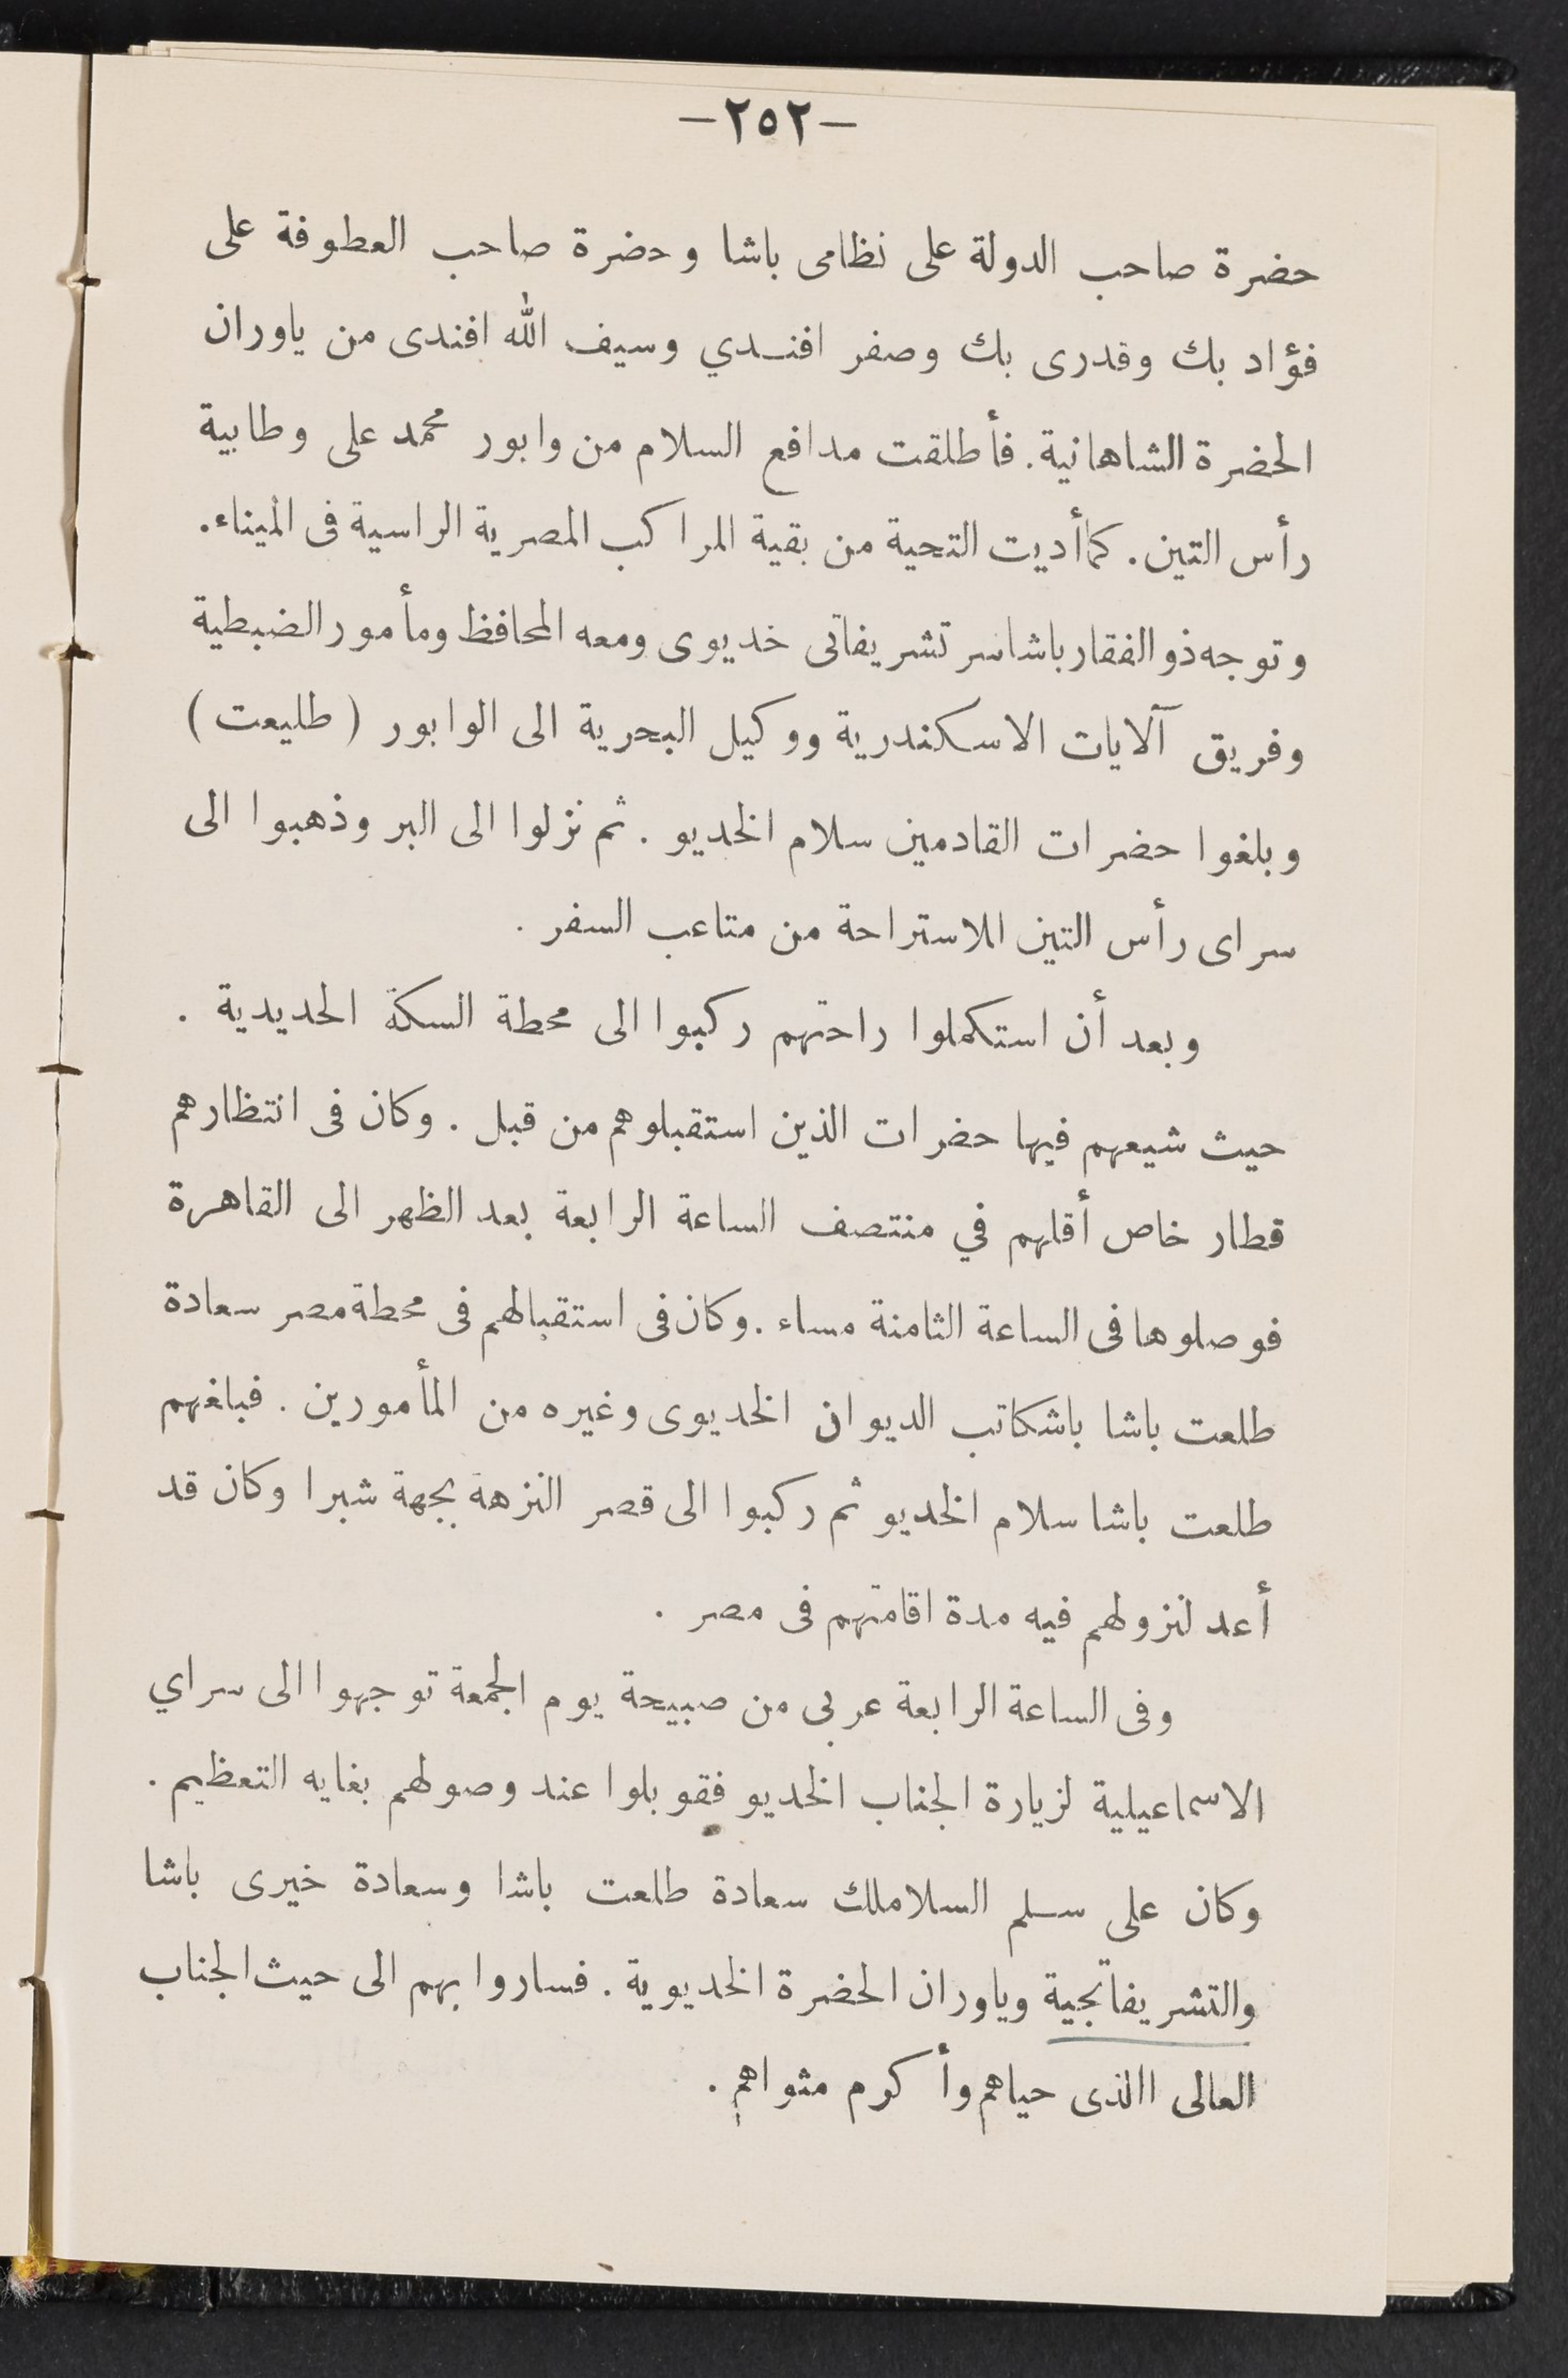 —٢٥٢—
حضرة صاحب الدولة على نظامى باشا وحضرة صاحب العطوفة على
فؤاد بك وقدرى بك وصفر افنـدي وسيف الله افندى من ياوران
الحضرة الشاهانية. فأطلقت مدافع السلام من وابور محمد على وطابية
رأس التين. كما أديت التحية من بقية المراكب المصرية الراسية فى الميناء.
وتوجه ذو الفقار باشا سر تشريفاتى خديوى ومعه المحافظ ومأمور الضبطية
وفريق آلايات الاسكندرية ووكيل البحرية الى الوابور (طليعت)
وبلغوا حضرات القادمين سلام الخديو. ثم نزلوا الى البر وذهبوا الى
سراى رأس التين للاستراحة من متاعب السفر.
وبعد أن استكملوا راحتهم ركبوا الى محطة السكة الحديدية.
حيث شيعهم فيها حضرات الذين استقبلوهم من قبل. وكان فى انتظارهم
قطار خاص أقلهم في منتصف الساعة الرابعة بعد الظهر الى القاهرة
فوصلوها فى الساعة الثامنة مساء. وكان فى استقبالهم فى محطة مصر سعادة
طلعت باشا باشكاتب الديوان الخديوى وغيره من المأمورين. فبلغهم
طلعت باشا سلام الخديو ثم ركبوا الى قصر النزهة بجهة شبرا وكان قد
أعد لنزولهم فيه مدة اقامتهم فى مصر.
وفى الساعة الرابعة عربى من صبيحة يوم الجمعة توجهوا الى سراي
الاسماعيلية لزيارة الجناب الخديو فقوبلوا عند وصولهم بغايه التعظيم.
وكان على سـلم السلاملك سعادة طلعت باشا وسعادة خيرى باشا
والتشريفاتجية وياوران الحضرة الخديوية. فساروا بهم الى حيث الجناب
العالى االذى حياهم وأكرم مثواهم.